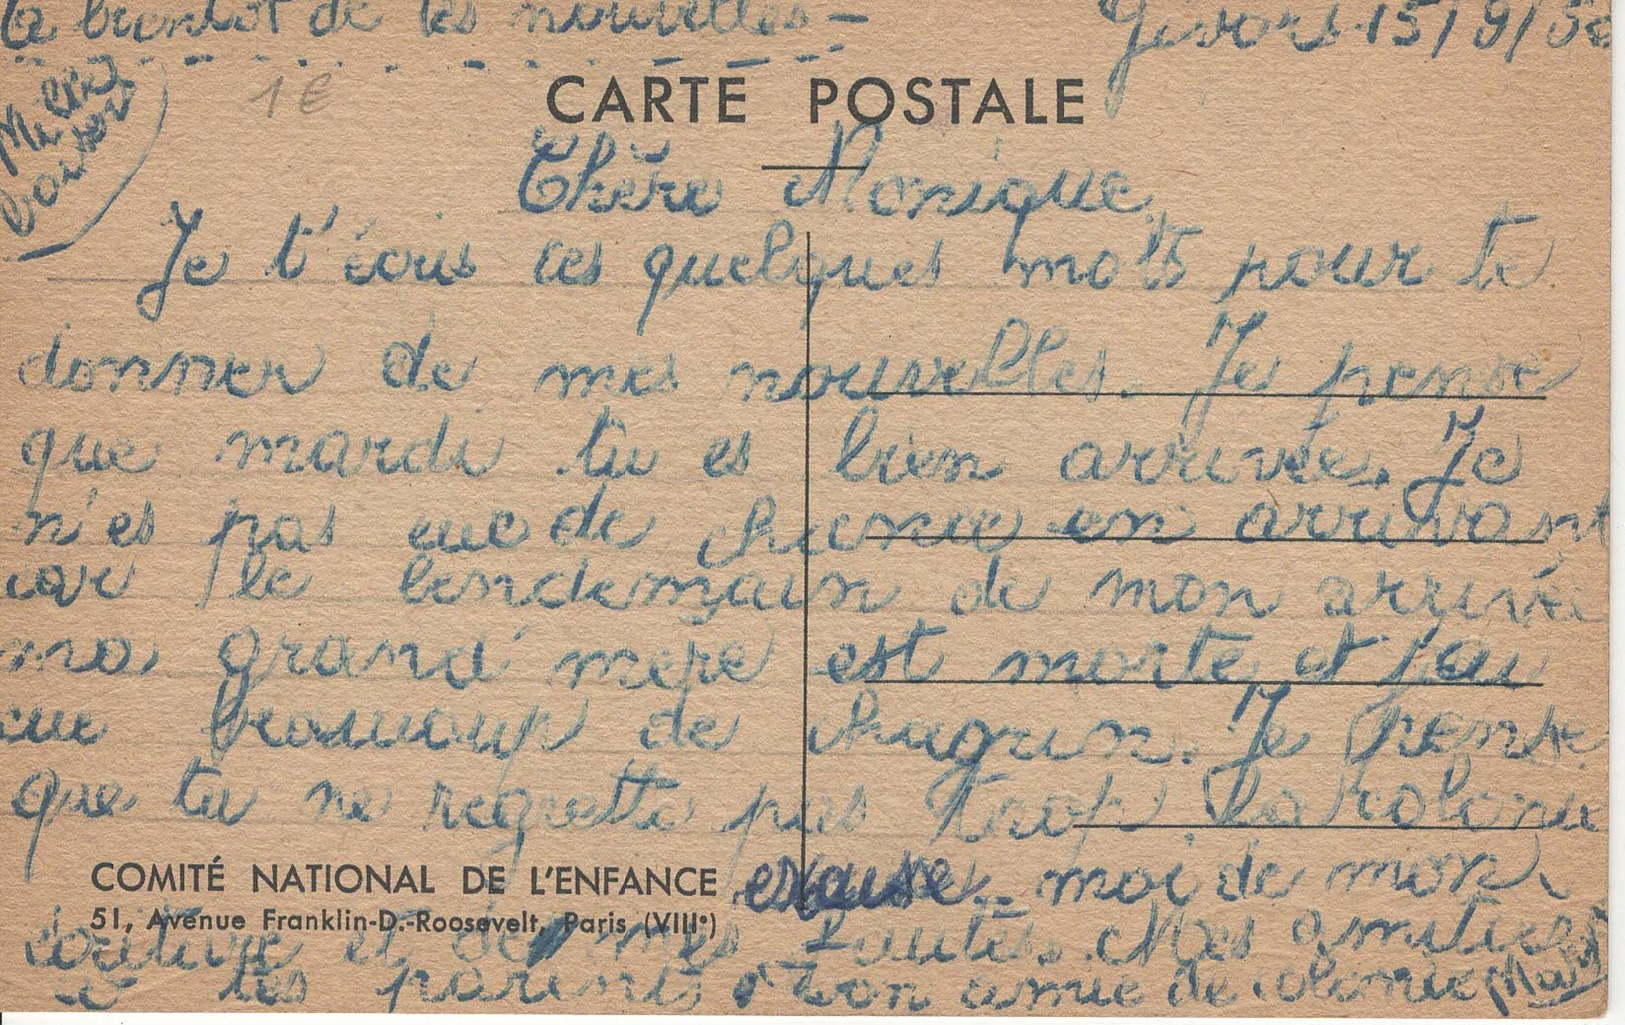 a bientot de tes nouvelles -
Givors 15/9/50
1€
CARTE POSTALE
Mille
baisers
Chère Monique,
Je t'écris ces quelques mots pour te
donner de mes nouvelles. Je pense
que mardi tu es bien arrivée. Je
n'es pas eue de chance en arrivant
car le lendemain de mon arrivée
ma grand' mère est morte et j'ai
eue beaucoup de chagrin. Je pense
que tu ne regrette pas trop la kolonie
COMITÉ NATIONAL DE L'ENFANCE
51, Avenue Franklin-D.-Roosevelt, Paris (VIIIe)
excuse-moi de mon
écriture et de mes fautes. Mes amitiés
à tes parents ton amie de colonie